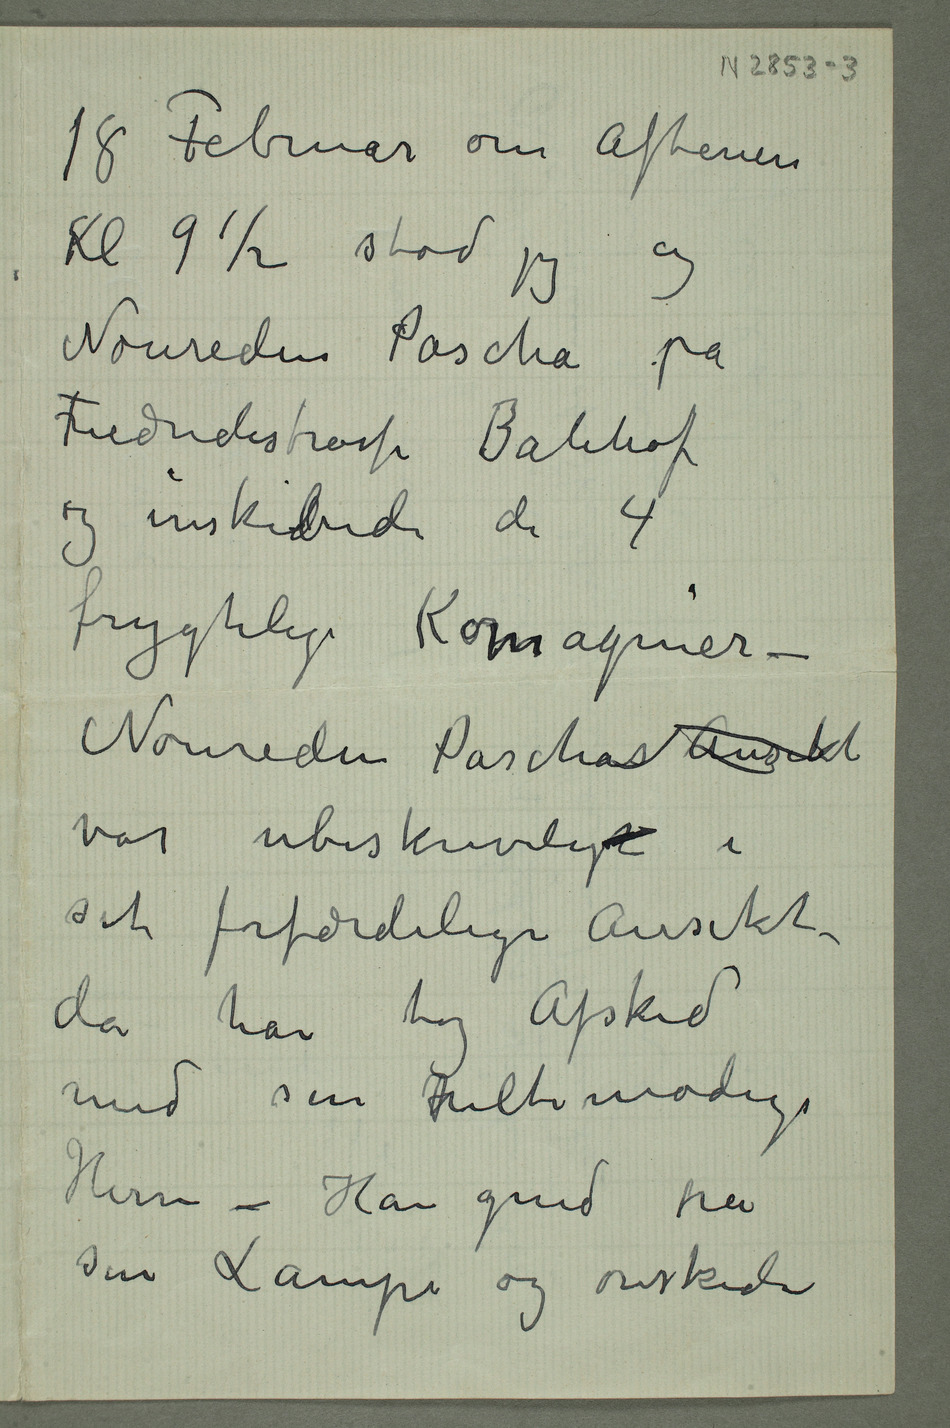 N 2853-3
18 Februar om Aftenen
Kl 9 1/2 stod jeg og
Nouredin Pascha på
Friedrichstrasse Bahhof
og inskibede de 4
frygtelige Komagnier –
Nouredin Paschas Ansikt
var ubeskrivelig i
sit forfærdelige Ansikt –
da han tog Afsked
med sin heltemodige
Herre – Han gned på
sin Lampe og ønskede